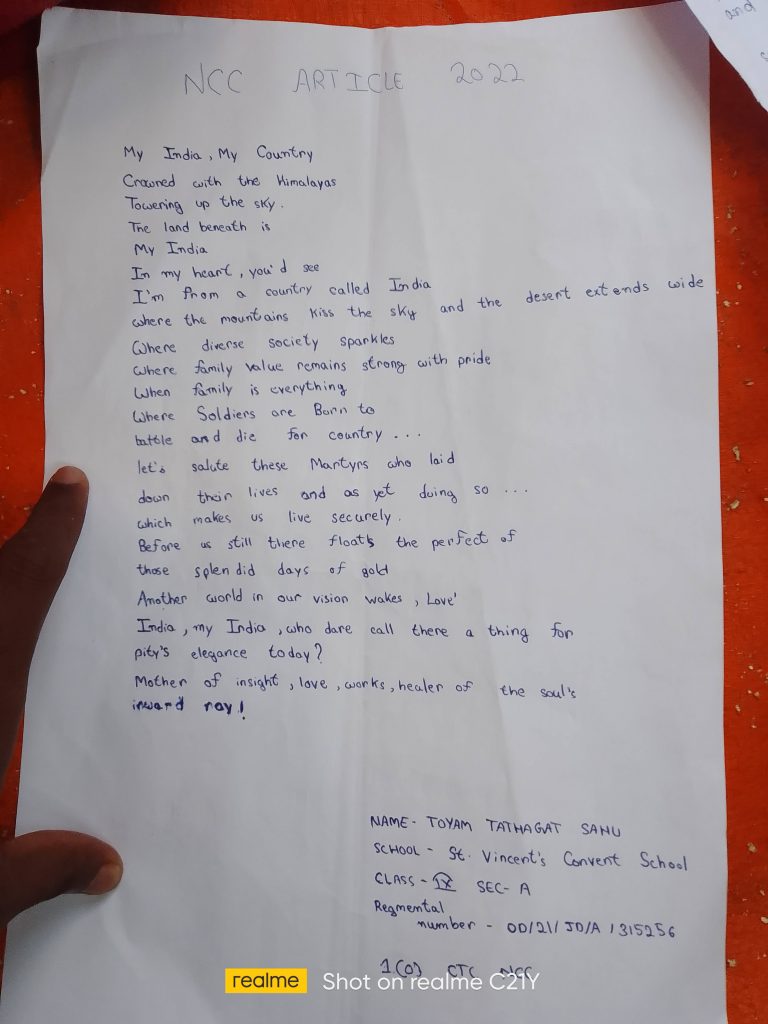 and
NCC ARTICLE 2022
My India, My Country
Crowned with the Himalayas
Towering up the sky.
The land beneath is
My India
In my heart, you'd see
I'm from a country called India
where the mountains kiss the sky and the desert extends wide
Where diverse society sparkles
where family value remains strong with pride
When family is everything
Where Soldiers are Born to
battle and die for country ...
let's salute these Martyrs who laid
down their lives and as yet doing so ...
which makes us live securely.
Before us still there floats the perfect of
those splendid days of gold
Another world in our vision wakes, Love'
India, my India, who dare call there a thing for
pity's elegance today?
Mother of insight, love, works, healer of the soul's
inward ray!
NAME- TOYAM TATHAGAT SAHU
SCHOOL - St. Vincent's Convent School
CLASS - IX SEC- A
Regmental
number - OD/21/JD/A/315256
1(O) CTC NCC
realme Shot on realme C21Y